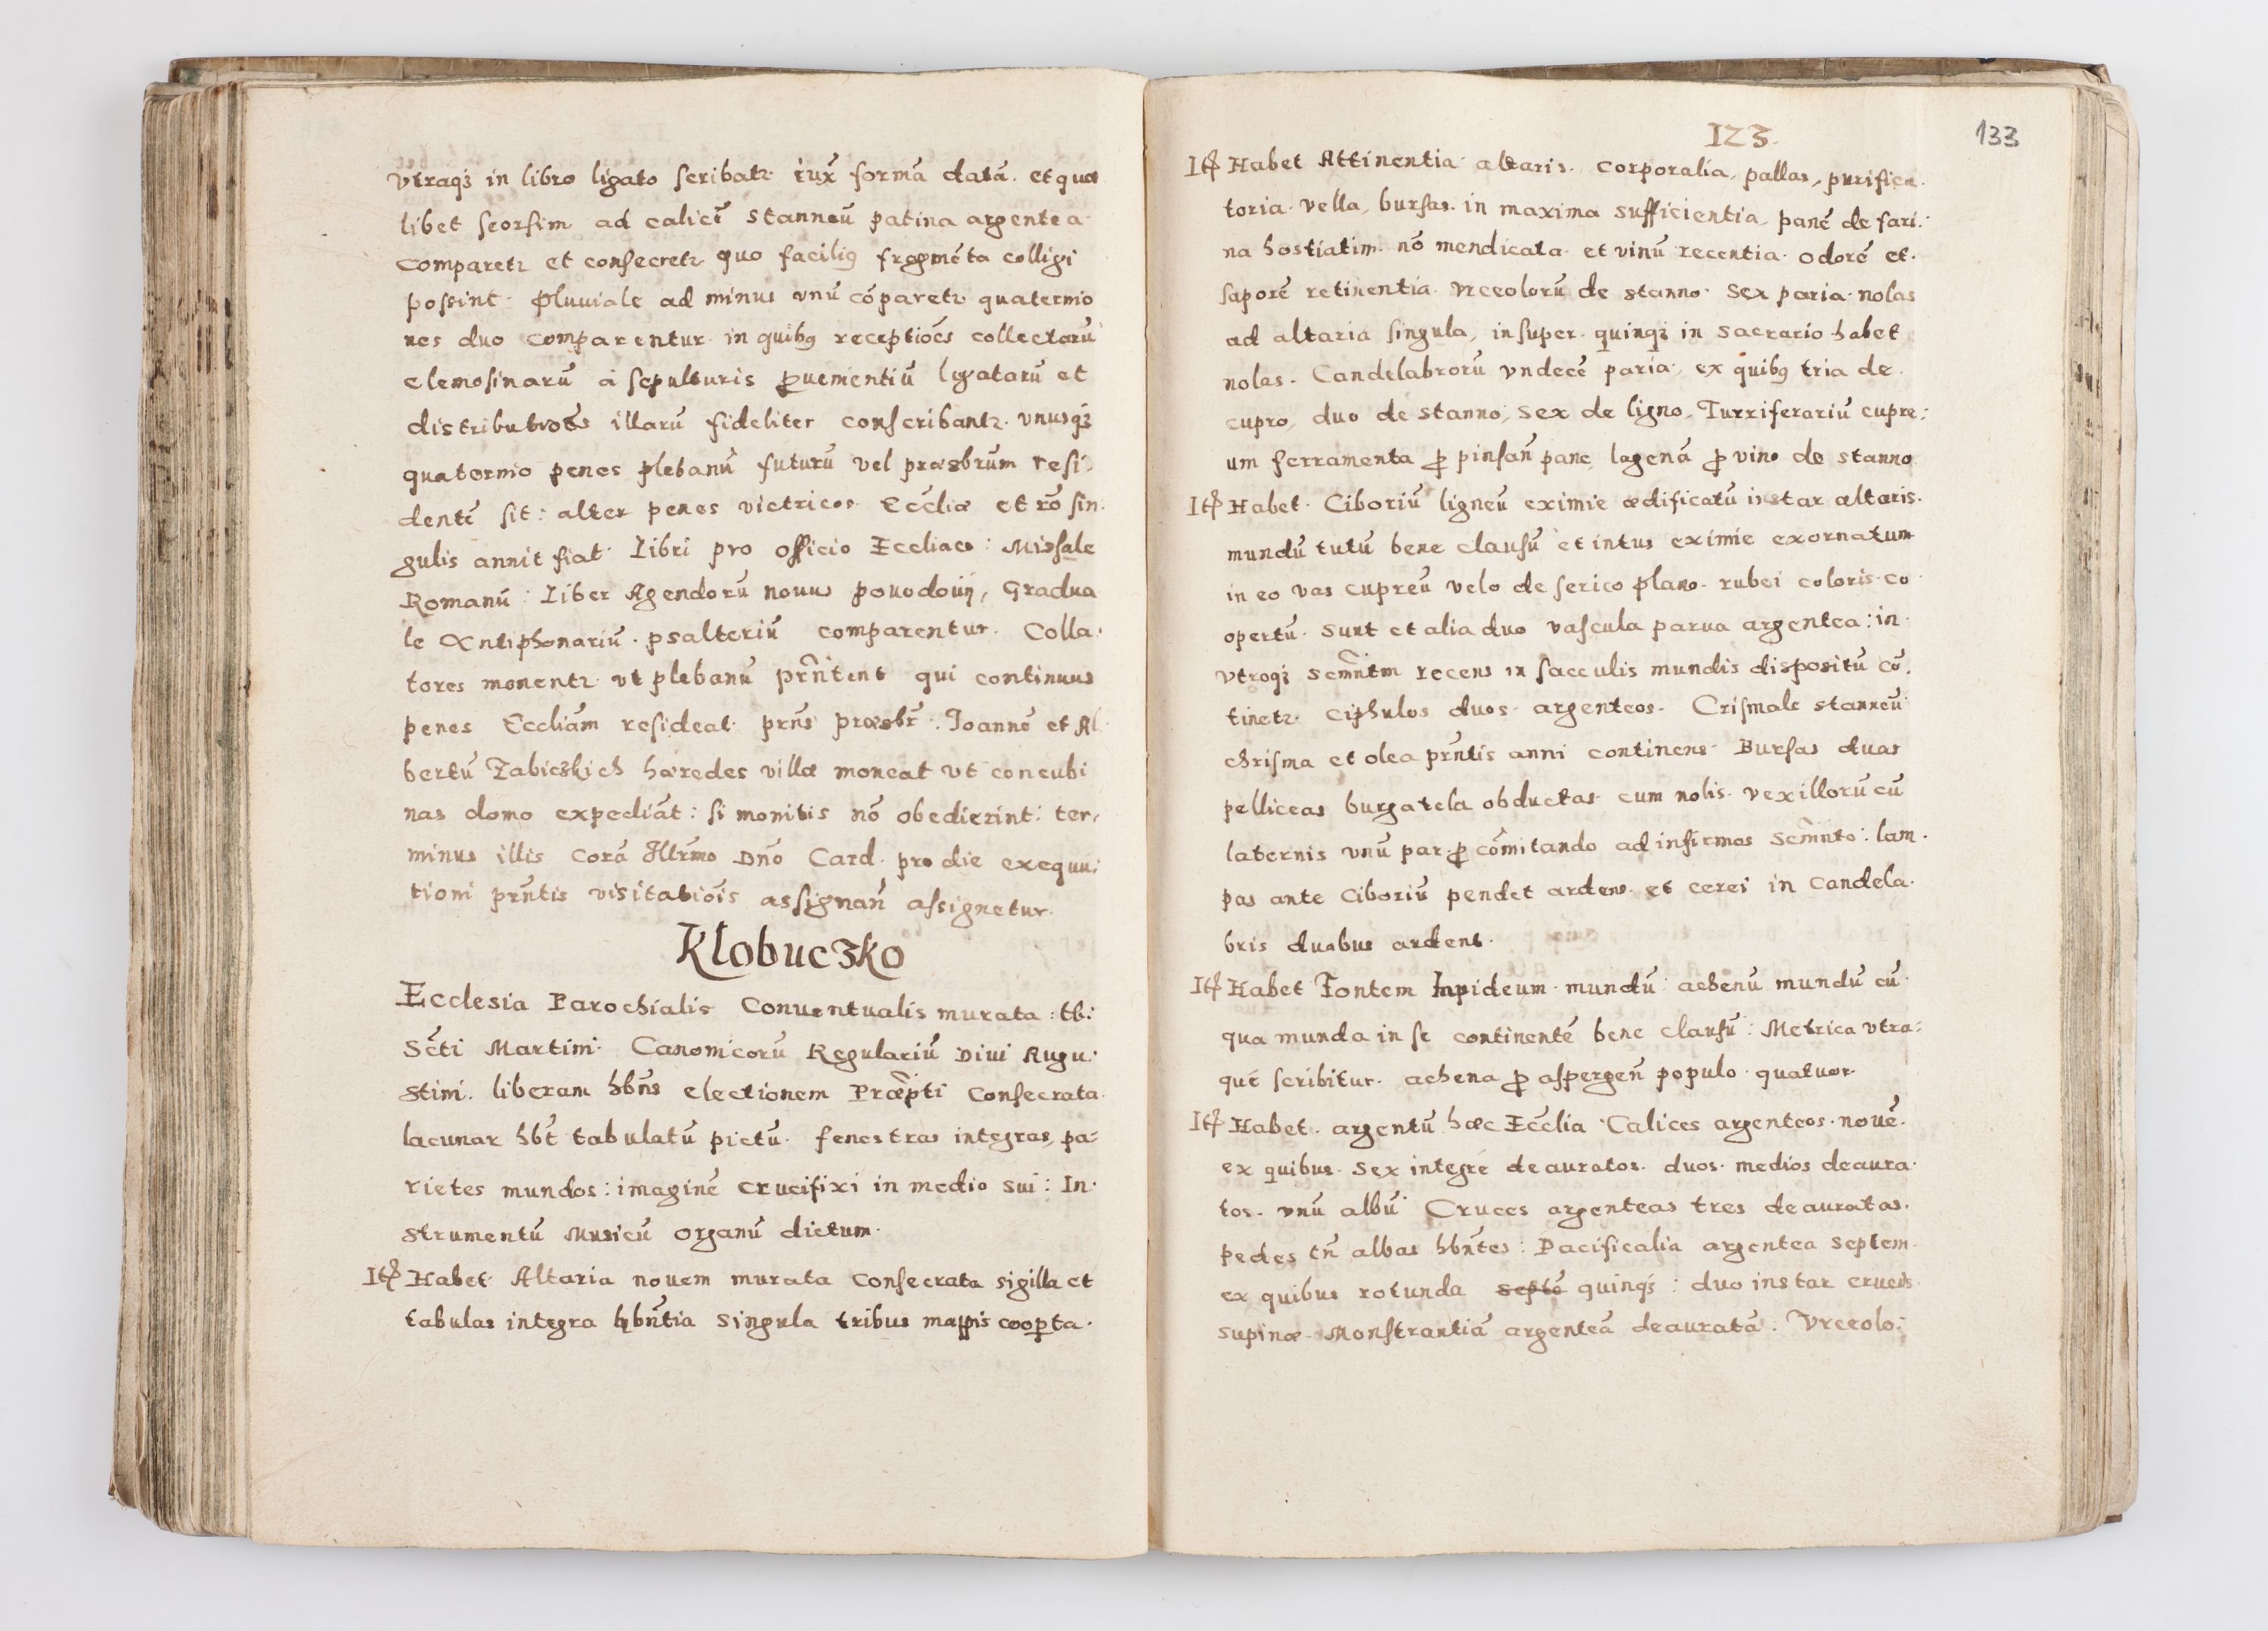 vtraqȝ in libro ligato scribatr iux̃ formā datā. et quæ
libet seorsim ad calicē stanneū patina argentea
Comparetr et consecretr quo facilius fragmēta colligi
possint. Pluuiale ad minus vnū cōparetr quaternio
nes duo comparentur in quibus receptiões collectarū
elemosinarū à sepulturis prouenientiū legatarū et
distributiões illarū fideliter conscribantr. vnusqȝ
quaternio penes plebanū futurū vel præsbrūm resi-
dentē sit: alter penes victricos Eccliæ et rō sin-
gulis annis fiat. Libri pro officio Eccliæ: Missale
Romanū: Liber Agendorū nouus powodowij, Gradua
le Antiphonariū. psalteriū comparentur. Colla-
tores monentr vt plebanū prñtent qui continuus
penes Eccliām resideat. prñs præsbr̃: Joannē et Al-
bertū Zabiczkich hæredes villæ moneat vt concubi
nas domo expediāt: si monitis nō obedierint: ter-
minus illis corā Illrm̃o Dnō Card. pro die exequu-
tioni prñtis visitatiōis assignañ assignetur.
Klobuczko
Ecclesia Parochialis Conuentualis murata: tt:
Sc̃ti Martini. Canonicorū Regulariū Diui Augu-
stini. liberam hbñs electionem Præpti Consecrata
lacunar hbt̃ tabulatū pictū. fenestras integras, pa-
rietes mundos: imaginē crucifixi in medio sui: In-
strumentū Musicū organū dictum.
Itē Habet Altaria nouem murata consecrata sigilla et
tabulas integra hbñtia singula tribus mappis cooperta.
123.
133
Itē Habet Attinentia altaris. Corporalia, pallas, purifica-
toria vella, bursas in maxima sufficientia, panē de fari-
na hostiatim nō mendicata et vinū recentia odorē et
saporē retinentia. Vrceolorū de stanno sex paria. nolas
ad altaria singula, insuper quinqȝ in sacrario habet
nolas. Candelabrorū vndecē paria, ex quibus tria de
cupro, duo de stanno, sex de ligno, Turriferariū cupre-
um ferramenta pro pinsañ pane, lagenā pro vino de stanno
Itē Habet Ciboriū ligneū eximie ædificatū instar altaris.
mundū tutū bene clausū et intus eximie exornatum
in eo vas cupreū velo de serico plano rubei coloris co
opertū. Sunt et alia duo vascula parua argentea: in
vtroqȝ Scmñtm recens in sacculis mundis dispositū cō-
tinetr. Ciphulos duos argenteos. Crismale stanneū
chrisma et olea prñtis anni continens. Bursas duas
pelliceas burgatela obductas cum nolis. vexillorū cū
laternis vnū par pro cōmitando ad infirmos Scmñto: lam-
pas ante Ciboriū pendet ardens et cerei in candela-
bris duobus ardent.
Itē Habet Fontem lapideum mundū: achenū mundū cū
qua munda in se continentē bene clausū: Metrica vtra-
quē scribitur. achena pro aspergeñ populo quatuor
Itē Habet argentū hæc Ecclia Calices argenteos nouē.
ex quibus sex integrē deauratos. duos medios deaura-
tos. vnū albū. Cruces argenteas tres deauratas.
pedes tñ albas hbñtes: Pacificalia argentea septem
ex quibus rotunda septē quinqȝ: duo instar crucis
supinæ. Monstrantiā argenteā deauratā. Vrceolo-